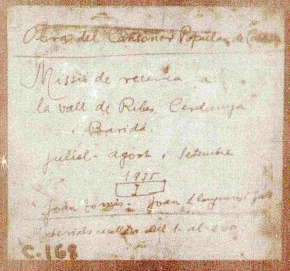 Obra del Cançoner Popular de
Missió de recerca a
la vall de Ribes, Cerdanya
i Baridà.
juliol - agost i setembre
1925
Joan Tomàs. Joan Llongueres
Materials del 1 al
C-168